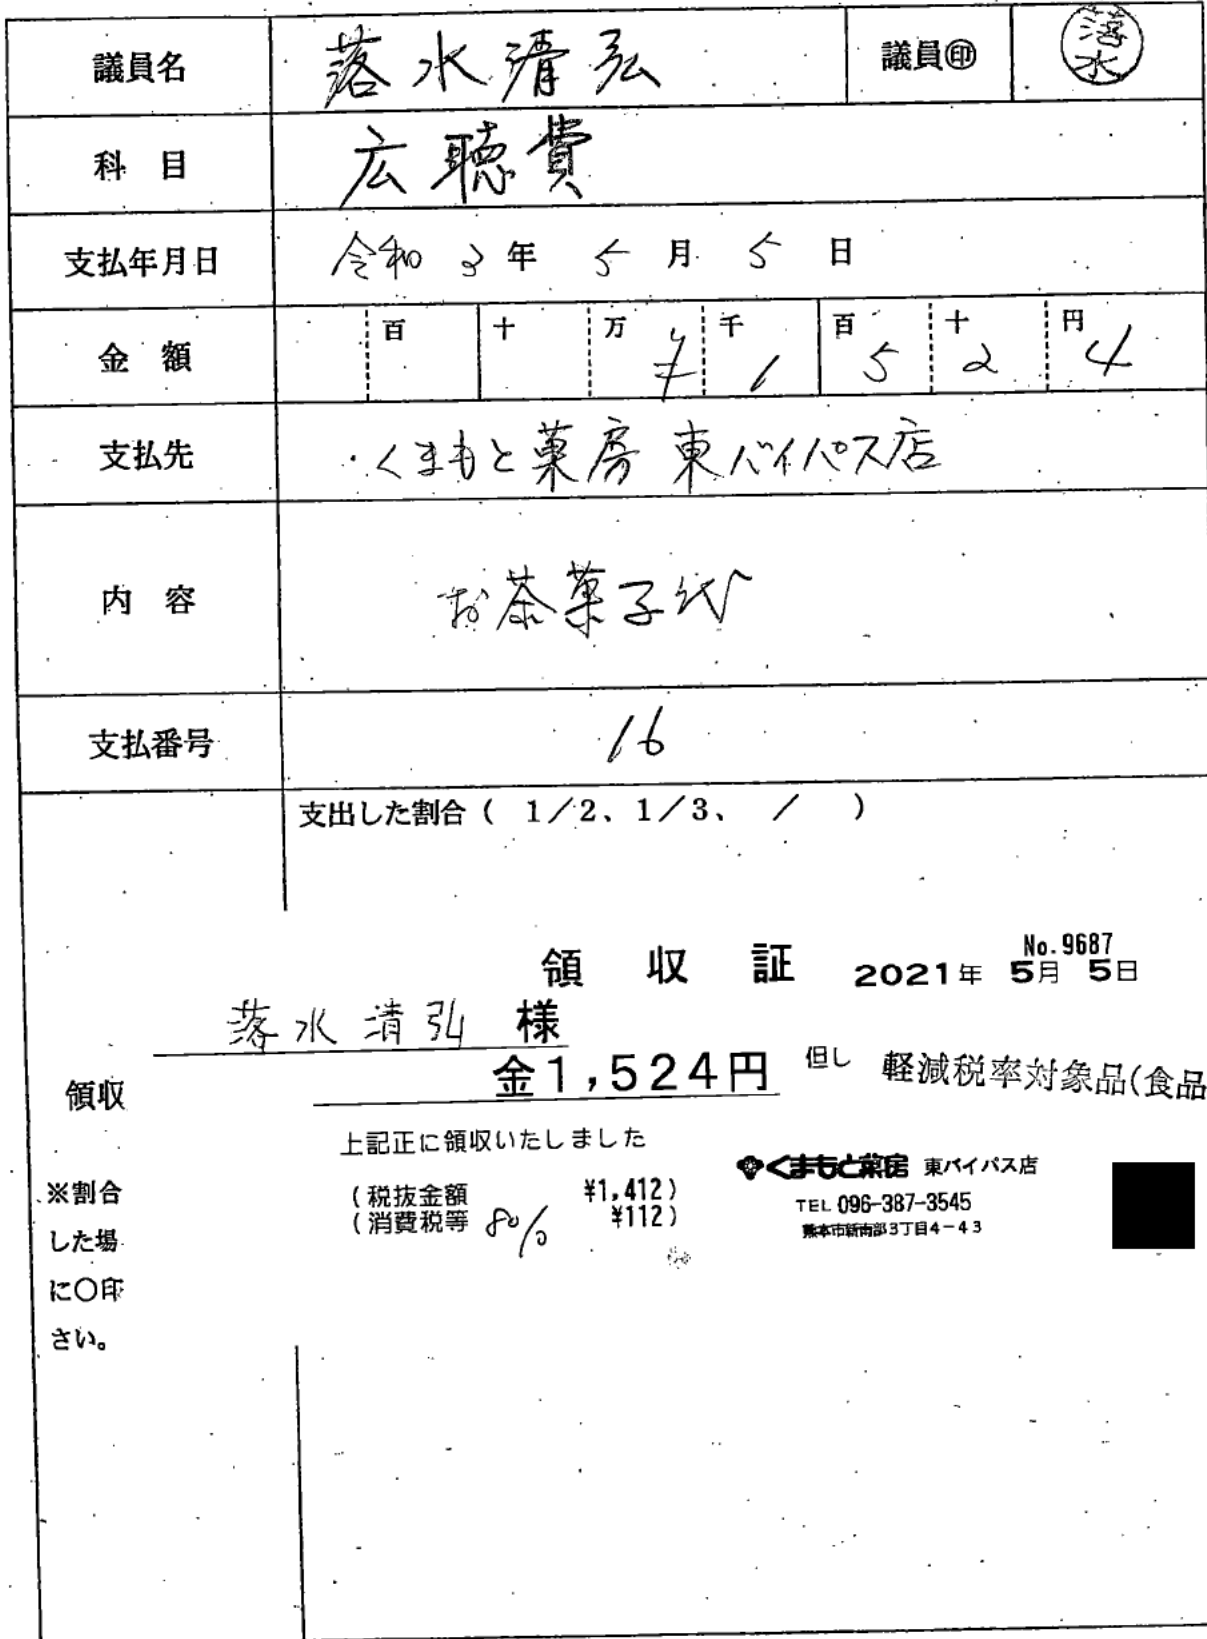 議員名 落水清弘 議員㊞ 落水
科 目 広聴費
支払年月日 令和 3 年 5 月 5 日
金 額 百 十 万 ¥ 千 1 百 5 十 2 円 4
支払先 くまもと菓房 東バイパス店
内 容 お茶菓子代
支払番号 16
支出した割合( 1/2、1/3、 / )
領 収 証 2021年 5月 5日
No.9687
落水清弘 様
金1,524円 但し 軽減税率対象品(食品
領収
上記正に領収いたしました
(税抜金額 ¥1,412)
(消費税等 8% ¥112)
くまもと菓房 東バイパス店
TEL 096-387-3545
熊本市新南部3丁目4-43
※割合
した場
に○印
さい。